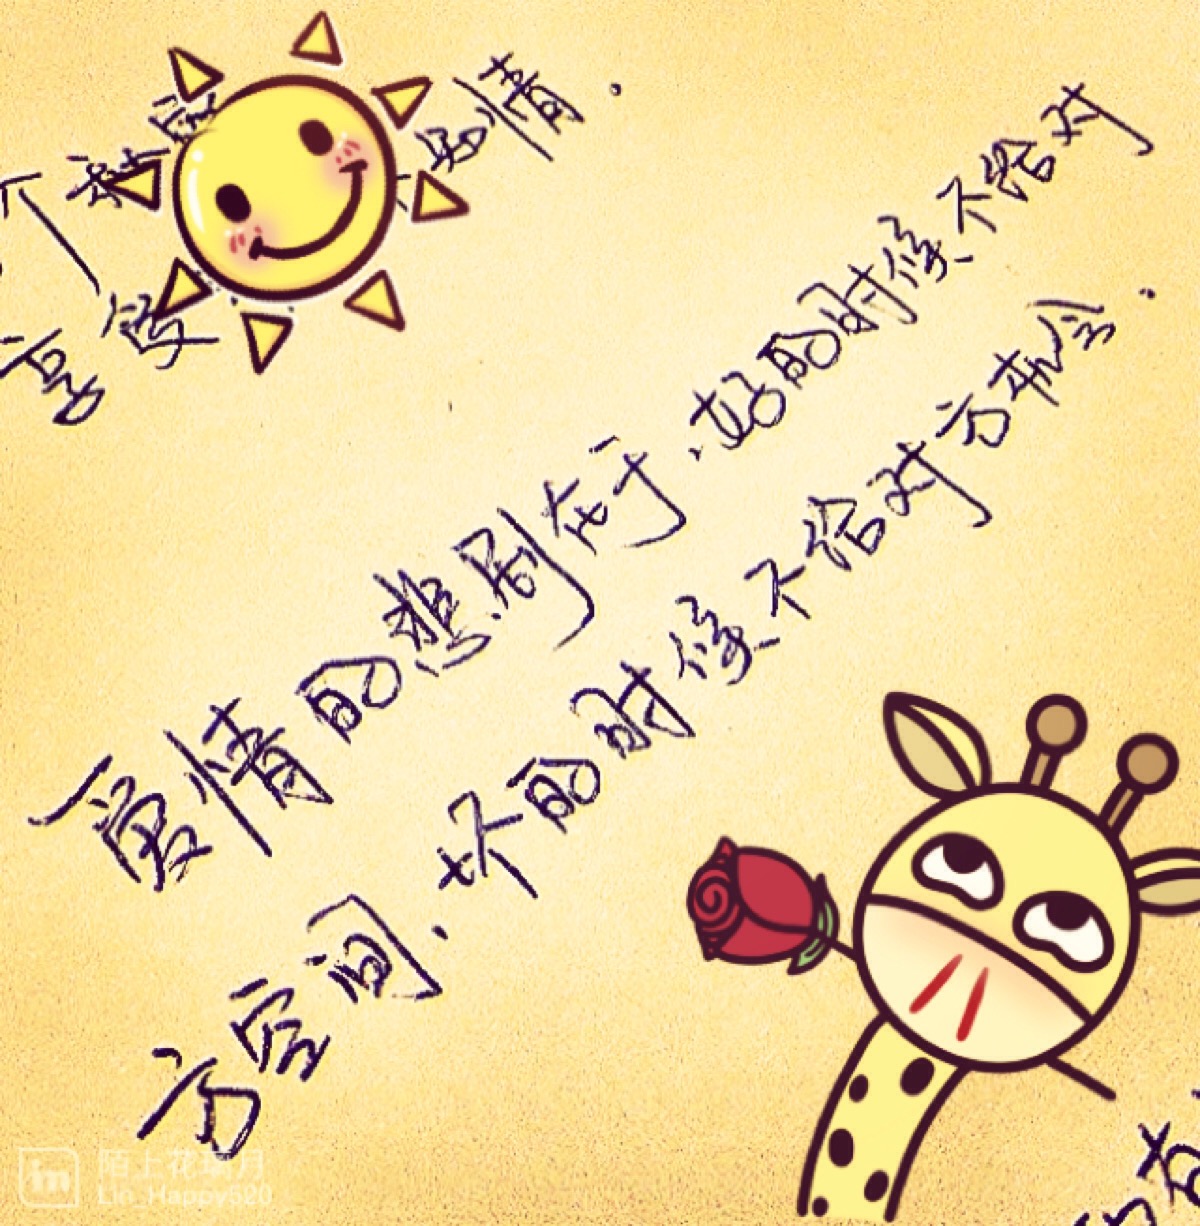 个
情.
享受
爱情的悲剧在于.好的时候不给对
方空间.坏的时候不给对方机会.
陌上花 月
Lin_Happy520